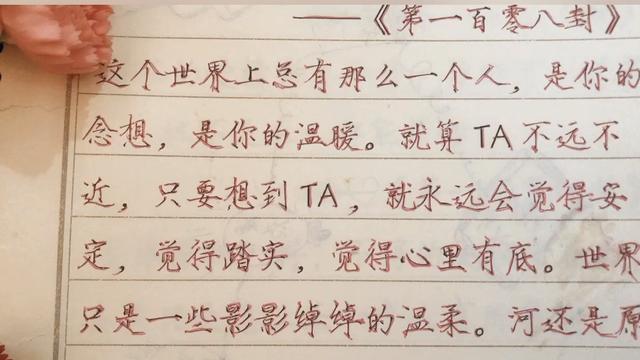 ——《第一百零八封》
这个世界上总有那么一个人，是你的
念想，是你的温暖。就算TA不远不
近，只要想到TA，就永远会觉得安
定，觉得踏实，觉得心里有底。世界
只是一些影影绰绰的温柔。河还是原